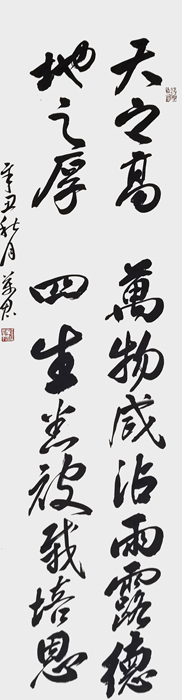 天之高 萬物咸沾雨露德
地之厚 四生悉被栽培恩
辛丑秋月